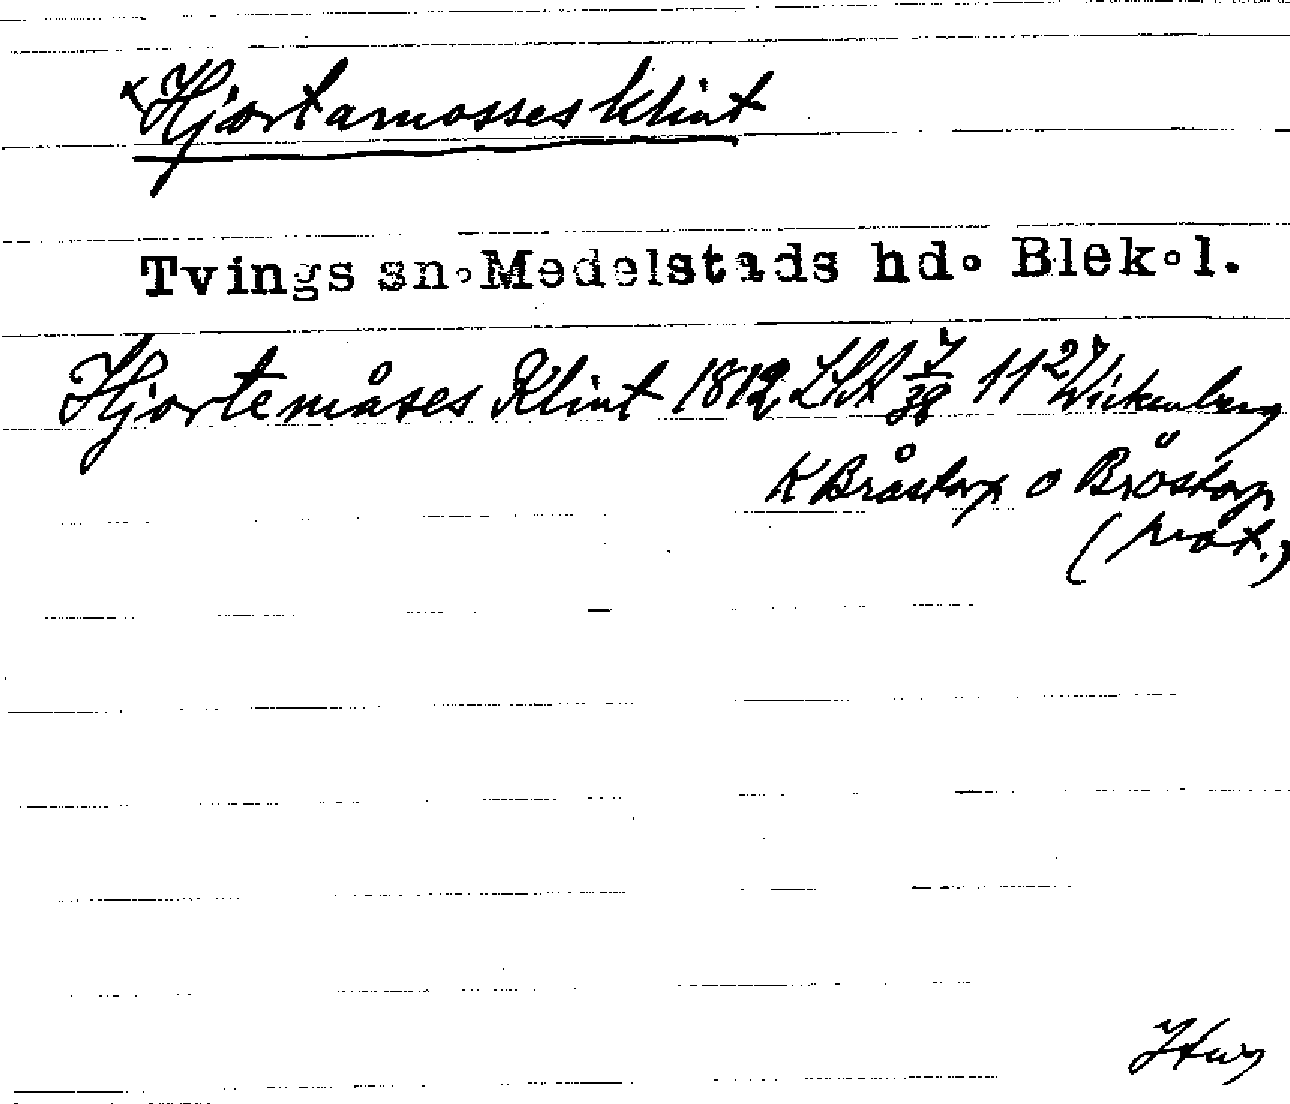 Hjortamosses klint
Tvings sn. Medelstads hd. Blek.l.
Hjortemåses Klint 1812 LSA 7/38 11 Wickenberg
K Bråstorp o Bröstorp
(prot.)